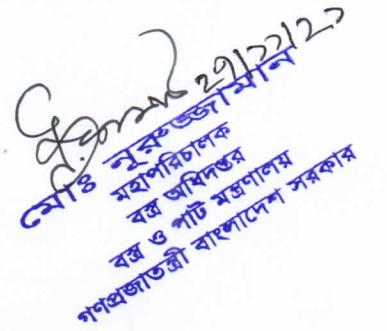 ২৭/১১/২১
মোঃ নূরুজ্জামান
মহাপরিচালক
বস্ত্র অধিদপ্তর
বস্ত্র ও পাট মন্ত্রণালয়
গণপ্রজাতন্ত্রী বাংলাদেশ সরকার